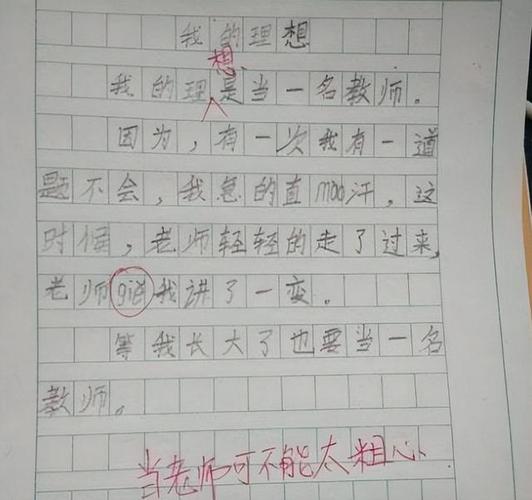 我的理想
想
我的理是当一名教师。
因为，有一次我有一道
题不会，我急的直mao汗，这
时候，老师轻轻的走了过来，
老师gei我讲了一变。
等我长大了也要当一名
教师。
当老师可不能太粗心